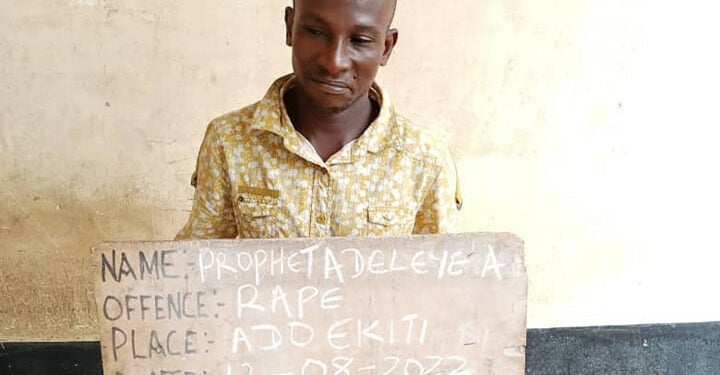 NAME:- PROPHET ADELEYE A
OFFENCE:- RAPE
PLACE:- ADO EKITI
12-08-2022